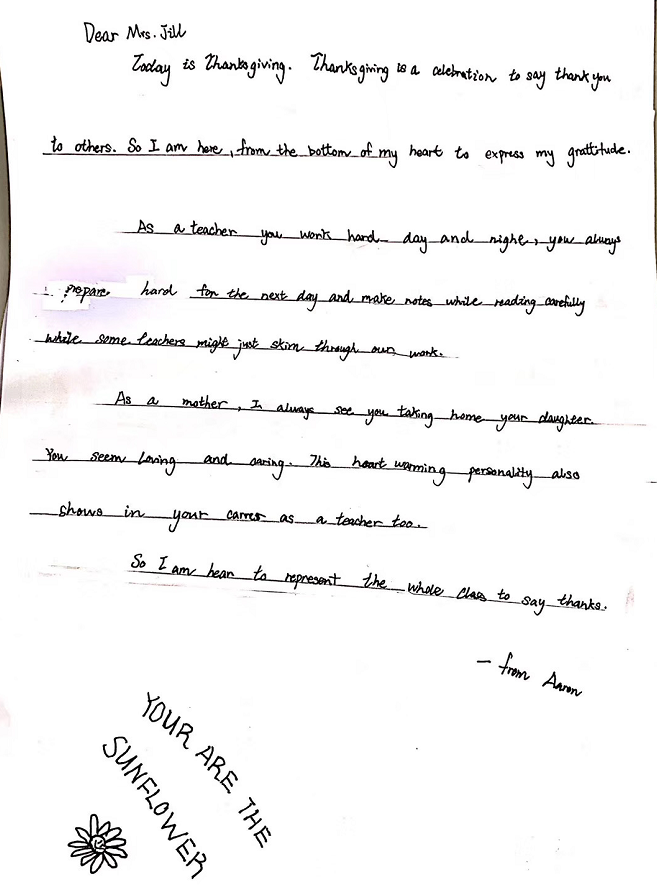 Dear Mrs. Jill
Today is Thanksgiving. Thanksgiving is a celebration to say thank you
to others. So I am here, from the bottom of my heart to express my grattitude.
As a teacher you work hard day and night, you always
prepare hard for the next day and make notes while reading carefully
while some teachers might just skim through own work.
As a mother, I always see you taking home your daughter.
You seem loving and caring. This heart warming personality also
shows in your carrer as a teacher too.
So I am hear to represent the whole class to say thanks.
- from Aaron
YOUR ARE THE
SUNFLOWER